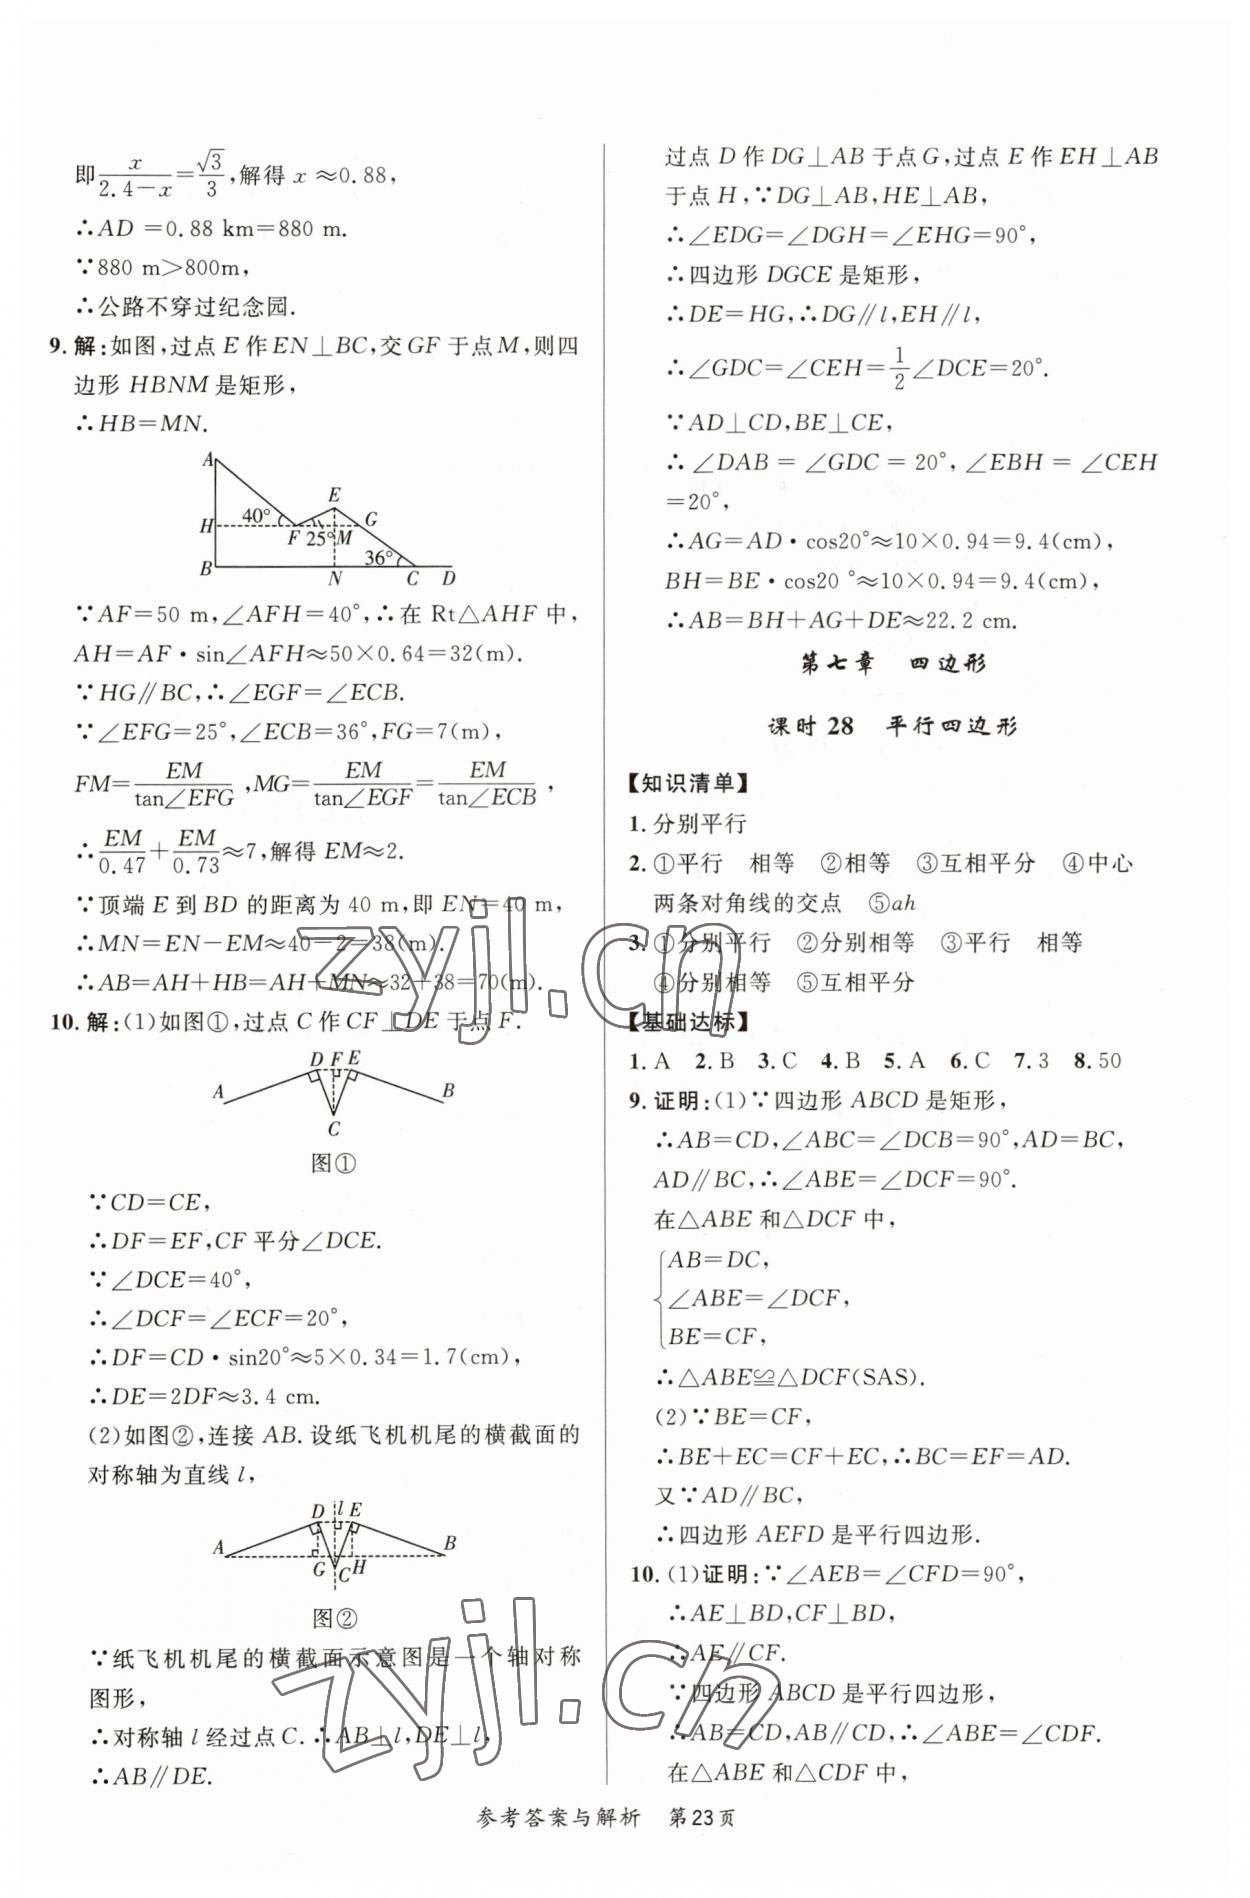 即x/(2.4-x)=√3/3,解得 x≈0.88,
∴AD=0.88 km=880 m.
∵880 m>800m,
∴公路不穿过纪念园.
9.解:如图,过点E作EN⊥BC,交GF于点M,则四
边形HBNM是矩形,
∴HB=MN.
A
E
H 40° G
F 25° M
36°
B N C D
∵AF=50 m,∠AFH=40°,∴在Rt△AHF中,
AH=AF·sin∠AFH≈50×0.64=32(m).
∵HG∥BC,∴∠EGF=∠ECB.
∵∠EFG=25°,∠ECB=36°,FG=7(m),
FM=EM/tan∠EFG,MG=EM/tan∠EGF=EM/tan∠ECB,
∴EM/0.47+EM/0.73≈7,解得EM≈2.
∵顶端E到BD的距离为40 m,即EN=40 m,
∴MN=EN-EM≈40-2=38(m).
∴AB=AH+HB=AH+MN≈32+38=70(m).
10.解:(1)如图①,过点C作CF⊥DE于点F.
D F E
A B
C
图①
∵CD=CE,
∴DF=EF,CF平分∠DCE.
∵∠DCE=40°,
∴∠DCF=∠ECF=20°,
∴DF=CD·sin20°≈5×0.34=1.7(cm),
∴DE=2DF≈3.4 cm.
(2)如图②,连接AB.设纸飞机机尾的横截面的
对称轴为直线l,
D l E
A B
G C H
图②
∵纸飞机机尾的横截面示意图是一个轴对称
图形,
∴对称轴l经过点C.∴AB⊥l,DE⊥l,
∴AB∥DE.
过点D作DG⊥AB于点G,过点E作EH⊥AB
于点H,∵DG⊥AB,HE⊥AB,
∴∠EDG=∠DGH=∠EHG=90°,
∴四边形DGCE是矩形,
∴DE=HG,∴DG∥l,EH∥l,
∴∠GDC=∠CEH=1/2∠DCE=20°.
∵AD⊥CD,BE⊥CE,
∴∠DAB=∠GDC=20°,∠EBH=∠CEH
=20°,
∴AG=AD·cos20°≈10×0.94=9.4(cm),
BH=BE·cos20°≈10×0.94=9.4(cm),
∴AB=BH+AG+DE≈22.2 cm.
第七章 四边形
课时28 平行四边形
【知识清单】
1.分别平行
2.①平行 相等 ②相等 ③互相平分 ④中心
两条对角线的交点 ⑤ah
3.①分别平行 ②分别相等 ③平行 相等
④分别相等 ⑤互相平分
【基础达标】
1.A 2.B 3.C 4.B 5.A 6.C 7.3 8.50
9.证明:(1)∵四边形ABCD是矩形,
∴AB=CD,∠ABC=∠DCB=90°,AD=BC,
AD∥BC,∴∠ABE=∠DCF=90°.
在△ABE和△DCF中,
AB=DC,
∠ABE=∠DCF,
BE=CF,
∴△ABE≌△DCF(SAS).
(2)∵BE=CF,
∴BE+EC=CF+EC,∴BC=EF=AD.
又∵AD∥BC,
∴四边形AEFD是平行四边形.
10.(1)证明:∵∠AEB=∠CFD=90°,
∴AE⊥BD,CF⊥BD,
∴AE∥CF.
∵四边形ABCD是平行四边形,
∴AB=CD,AB∥CD,∴∠ABE=∠CDF.
在△ABE和△CDF中,
参考答案与解析 第23页
zyjl.cn
zyjl.cn